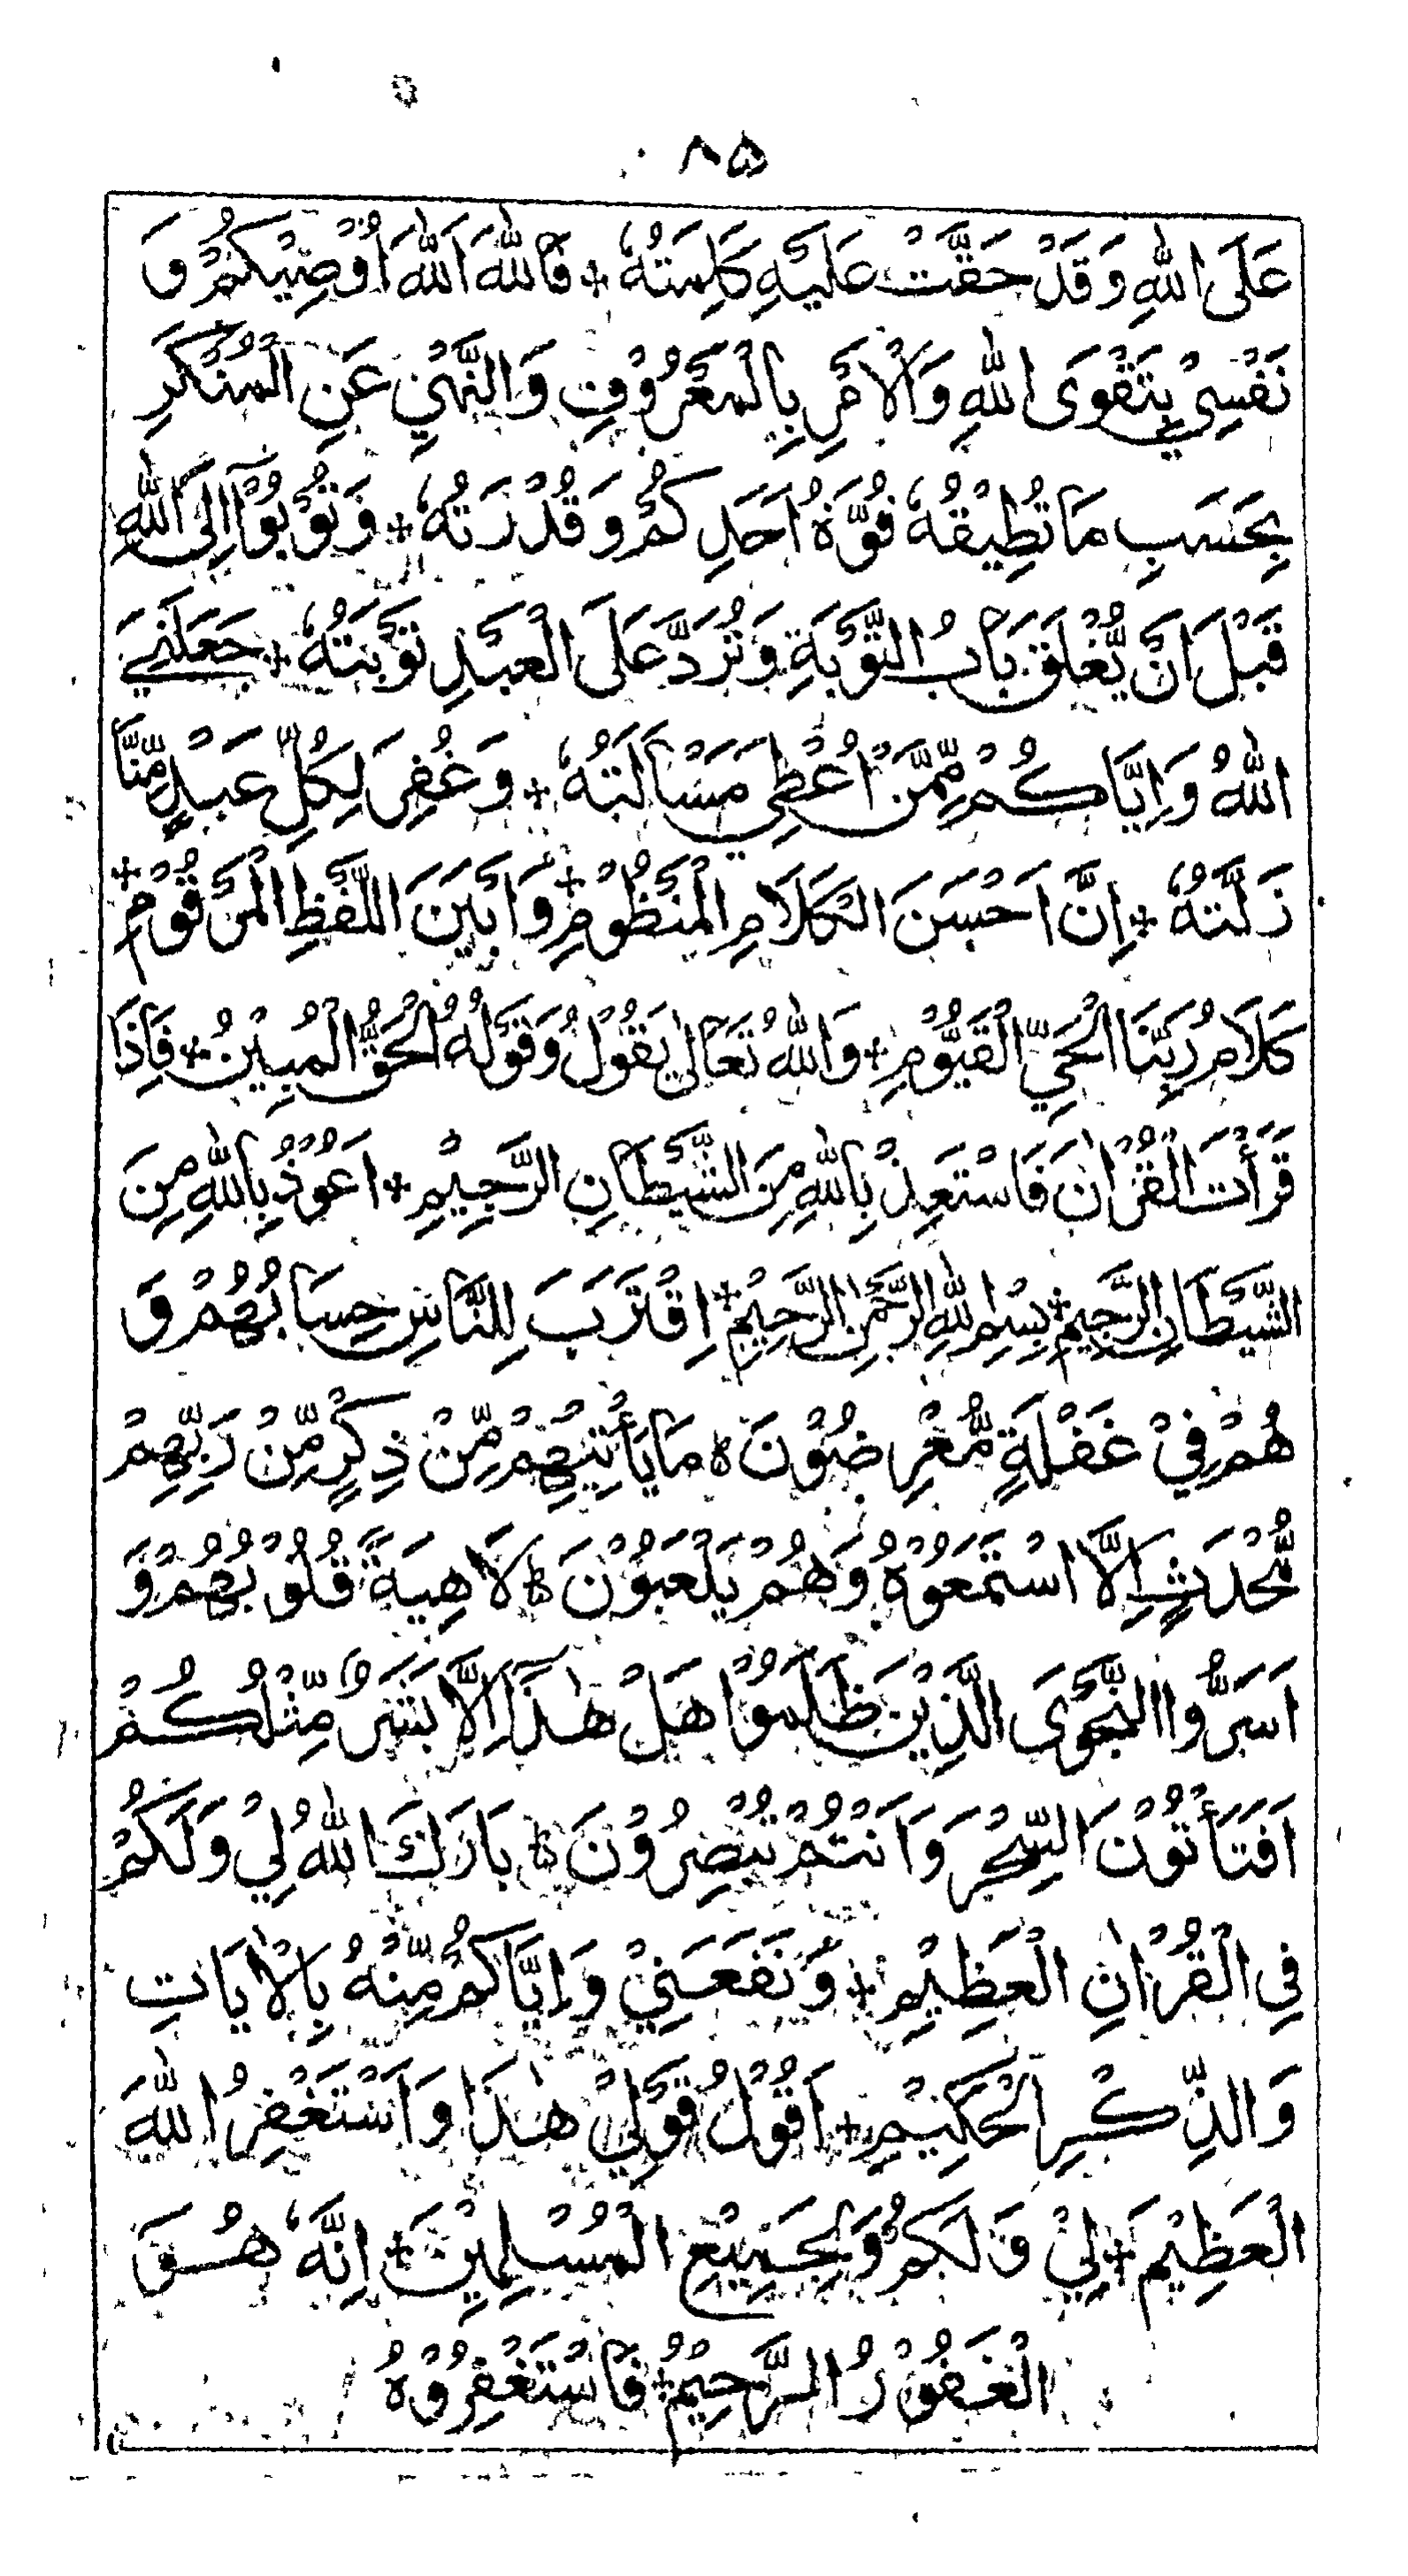 ۸۵
عَلَى اللهِ وَقَدْ حَقَّتْ عَلَيْهِ كَلِمَتُهٗ + فَاللهَ اَللهَ اُوْصِيْكُمْ وَ
نَفْسِيْ بِتَقْوَى اللهِ وَالْاَمْرِ بِالْمَعْرُوْفِ وَالنَّهْيِ عَنِ الْمُنْكَرِ
بِحَسَبِ مَا تُطِيْقُهٗ قُوَّةُ اَحَدِكُمْ وَقُدْرَتُهٗ + وَتُوْبُوْآ اِلَى اللهِ
قَبْلَ اَنْ يُّغْلَقَ بَابُ التَّوْبَةِ وَتُرَدَّ عَلَى الْعَبْدِ تَوْبَتُهٗ + جَعَلَنِيَ
اللهُ وَاِيَّاكُمْ مِّمَّنْ اُعْطِيَ مَسْاَلَتَهٗ + وَغُفِرَ لِكُلِّ عَبْدٍ مِّنَّا
زَلَّتُهٗ + اِنَّ اَحْسَنَ الْكَلَامِ الْمَنْظُوْمِ + وَاَبْيَنَ اللَّفْظِ الْمَرْقُوْمِ +
كَلَامُ رَبِّنَا الْحَيِّ الْقَيُّوْمِ + وَاللهُ تَعَالٰى يَقُوْلُ وَقَوْلُهُ الْحَقُّ الْمُبِيْنُ + فَاِذَا
قَرَأْتَ الْقُرْاٰنَ فَاسْتَعِذْ بِاللهِ مِنَ الشَّيْطَانِ الرَّجِيْمِ + اَعُوْذُ بِاللهِ مِنَ
الشَّيْطَانِ الرَّجِيْمِ + بِسْمِ اللهِ الرَّحْمٰنِ الرَّحِيْمِ + اِقْتَرَبَ لِلنَّاسِ حِسَابُهُمْ وَ
هُمْ فِيْ غَفْلَةٍ مُّعْرِضُوْنَ ہ مَا يَأْتِيْهِمْ مِّنْ ذِكْرٍ مِّنْ رَّبِّهِمْ
مُّحْدَثٍ اِلَّا اسْتَمَعُوْهُ وَهُمْ يَلْعَبُوْنَ ہ لَاهِيَةً قُلُوْبُهُمْ وَ
اَسَرُّوا النَّجْوَى الَّذِيْنَ ظَلَمُوْا هَلْ هٰذَآ اِلَّا بَشَرٌ مِّثْلُكُمْ
اَفَتَأْتُوْنَ السِّحْرَ وَاَنْتُمْ تُبْصِرُوْنَ ہ بَارَكَ اللهُ لِيْ وَلَكُمْ
فِي الْقُرْاٰنِ الْعَظِيْمِ + وَنَفَعَنِيْ وَاِيَّاكُمْ مِّنْهُ بِالْاٰيَاتِ
وَالذِّكْرِ الْحَكِيْمِ + اَقُوْلُ قَوْلِيْ هٰذَا وَاَسْتَغْفِرُ اللهَ
الْعَظِيْمَ + لِيْ وَلَكُمْ وَلِجَمِيْعِ الْمُسْلِمِيْنَ + اِنَّهٗ هُوَ
الْغَفُوْرُ الرَّحِيْمُ + فَاسْتَغْفِرُوْهُ